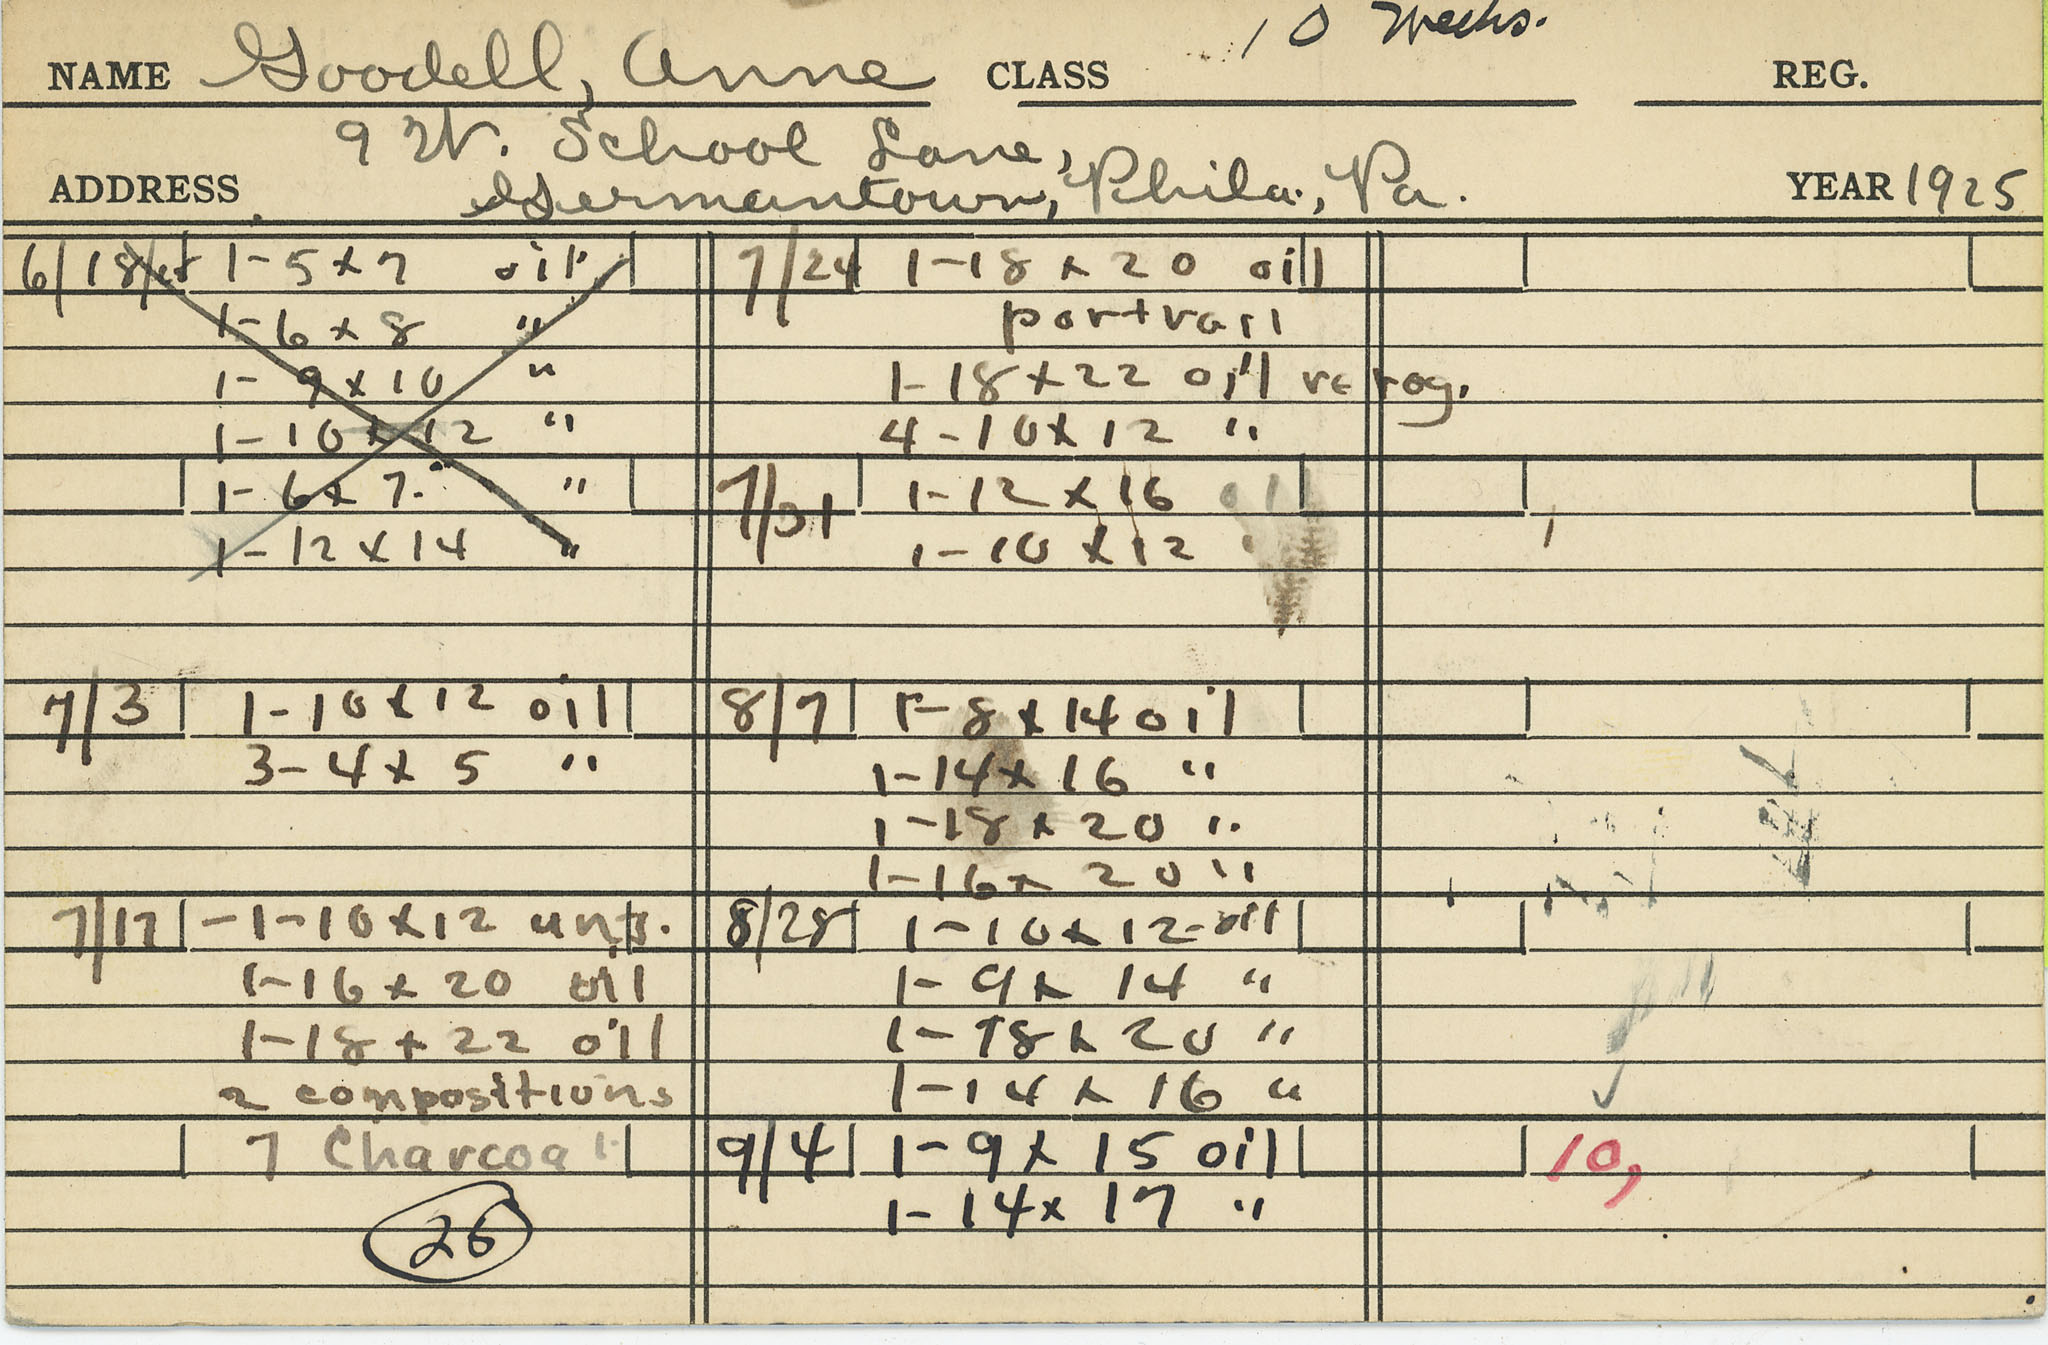 10 Weeks.
NAME Goodell, Anne CLASS REG.
9 W. School Lane,
ADDRESS Germantown, Phila., Pa. YEAR 1925
6/18 1-5x7 oil
1-6x8 "
1-9x10 "
1-10x12 "
1-6x7 "
1-12x14 "
7/3 1-10x12 oil
3-4x5 "
7/17 -1-10x12
1-16x20 oil
1-18x22 oil
2 compositions
7 Charcoal
26
7/24 1-18x20 oil
portrait
1-18x22 oil
4-10x12 "
7/31 1-12x16
1-10x12
8/7 1-8x14 oil
1-14x16 "
1-18x20 "
1-16x20 "
8/28 1-10x12-oil
1-9x14 "
1-18x20 "
1-14x16 "
9/4 1-9x15 oil
1-14x17 "
10,